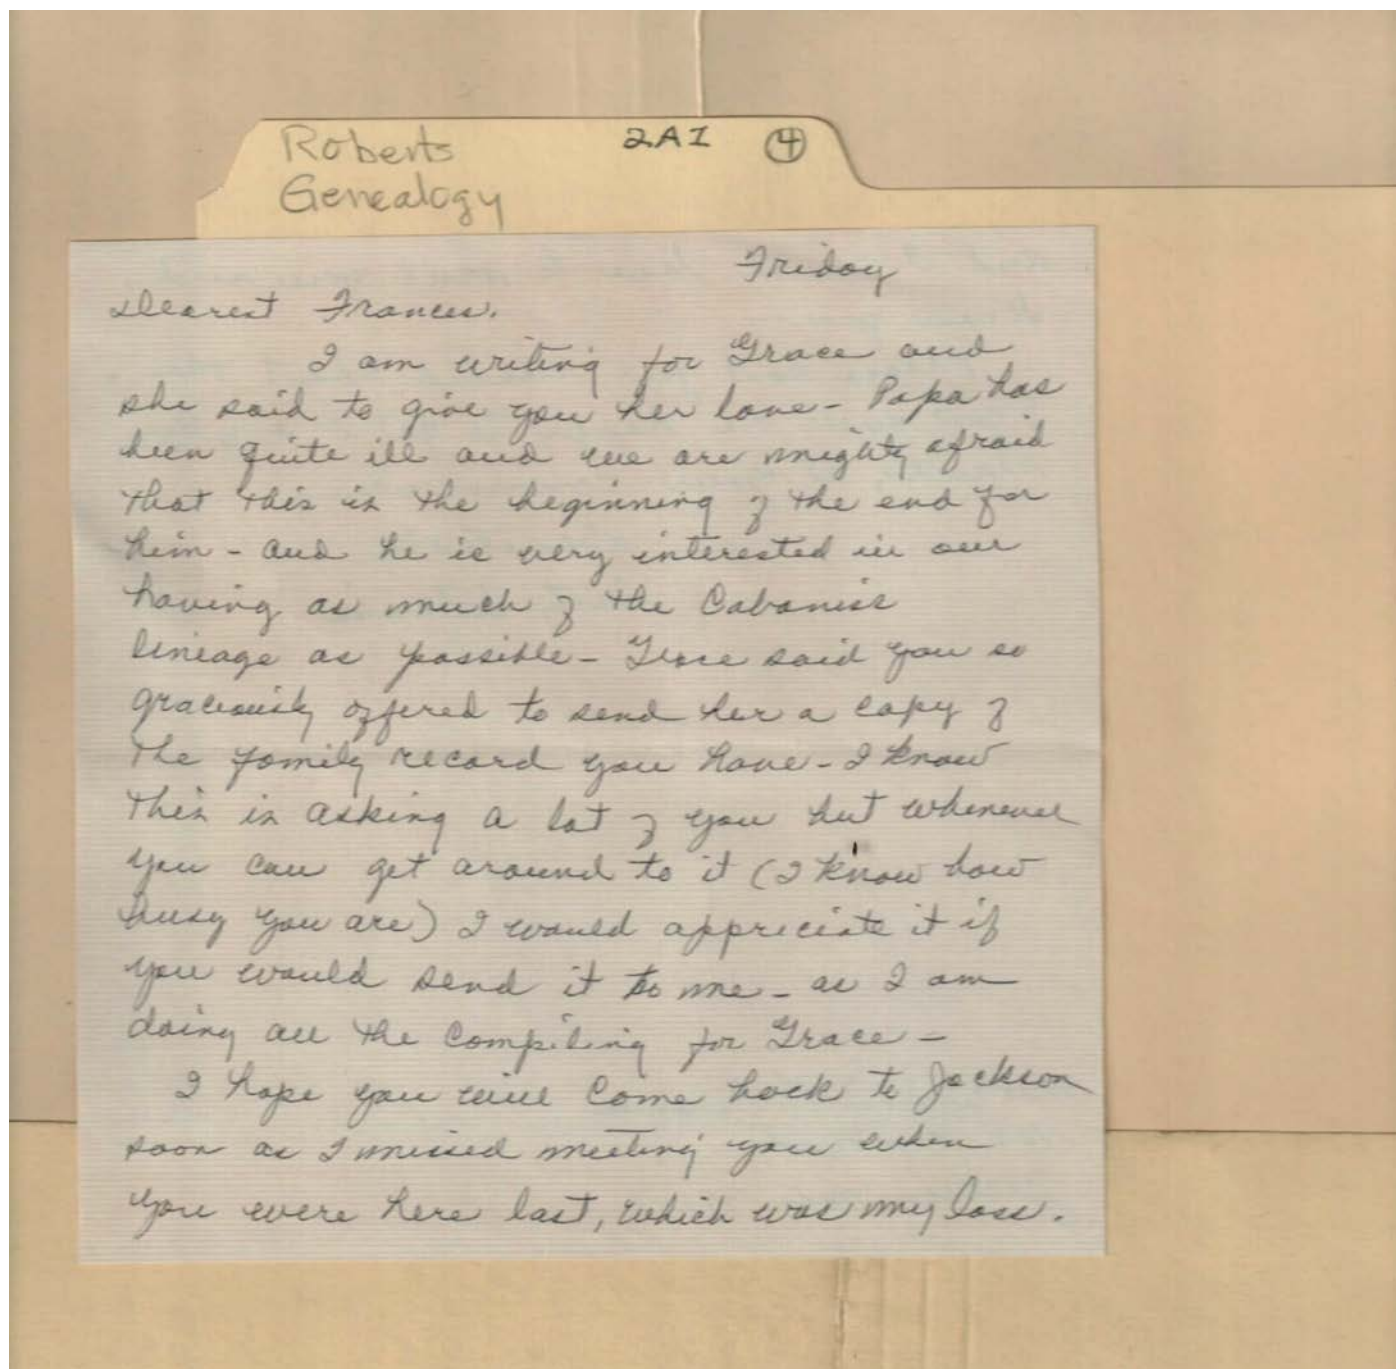 Roberts 2AI 4
Genealogy
Friday
Dearest Frances,
I am writing for Grace and
she said to give you her love - Papa has
been quite ill and we are mighty afraid
that this is the beginning of the end for
him - and he is very interested in our
having as much of the Cabaniss
lineage as possible - Grace said you so
graciously offered to send her a copy of
the family record you have - I know
this is asking a lot of you but whenever
you can get around to it (I know how
busy you are) I would appreciate it if
you would send it to me - as I am
doing all the compiling for Grace -
I hope you will come back to Jackson
soon as I missed meeting you when
you were here last, which was my loss.